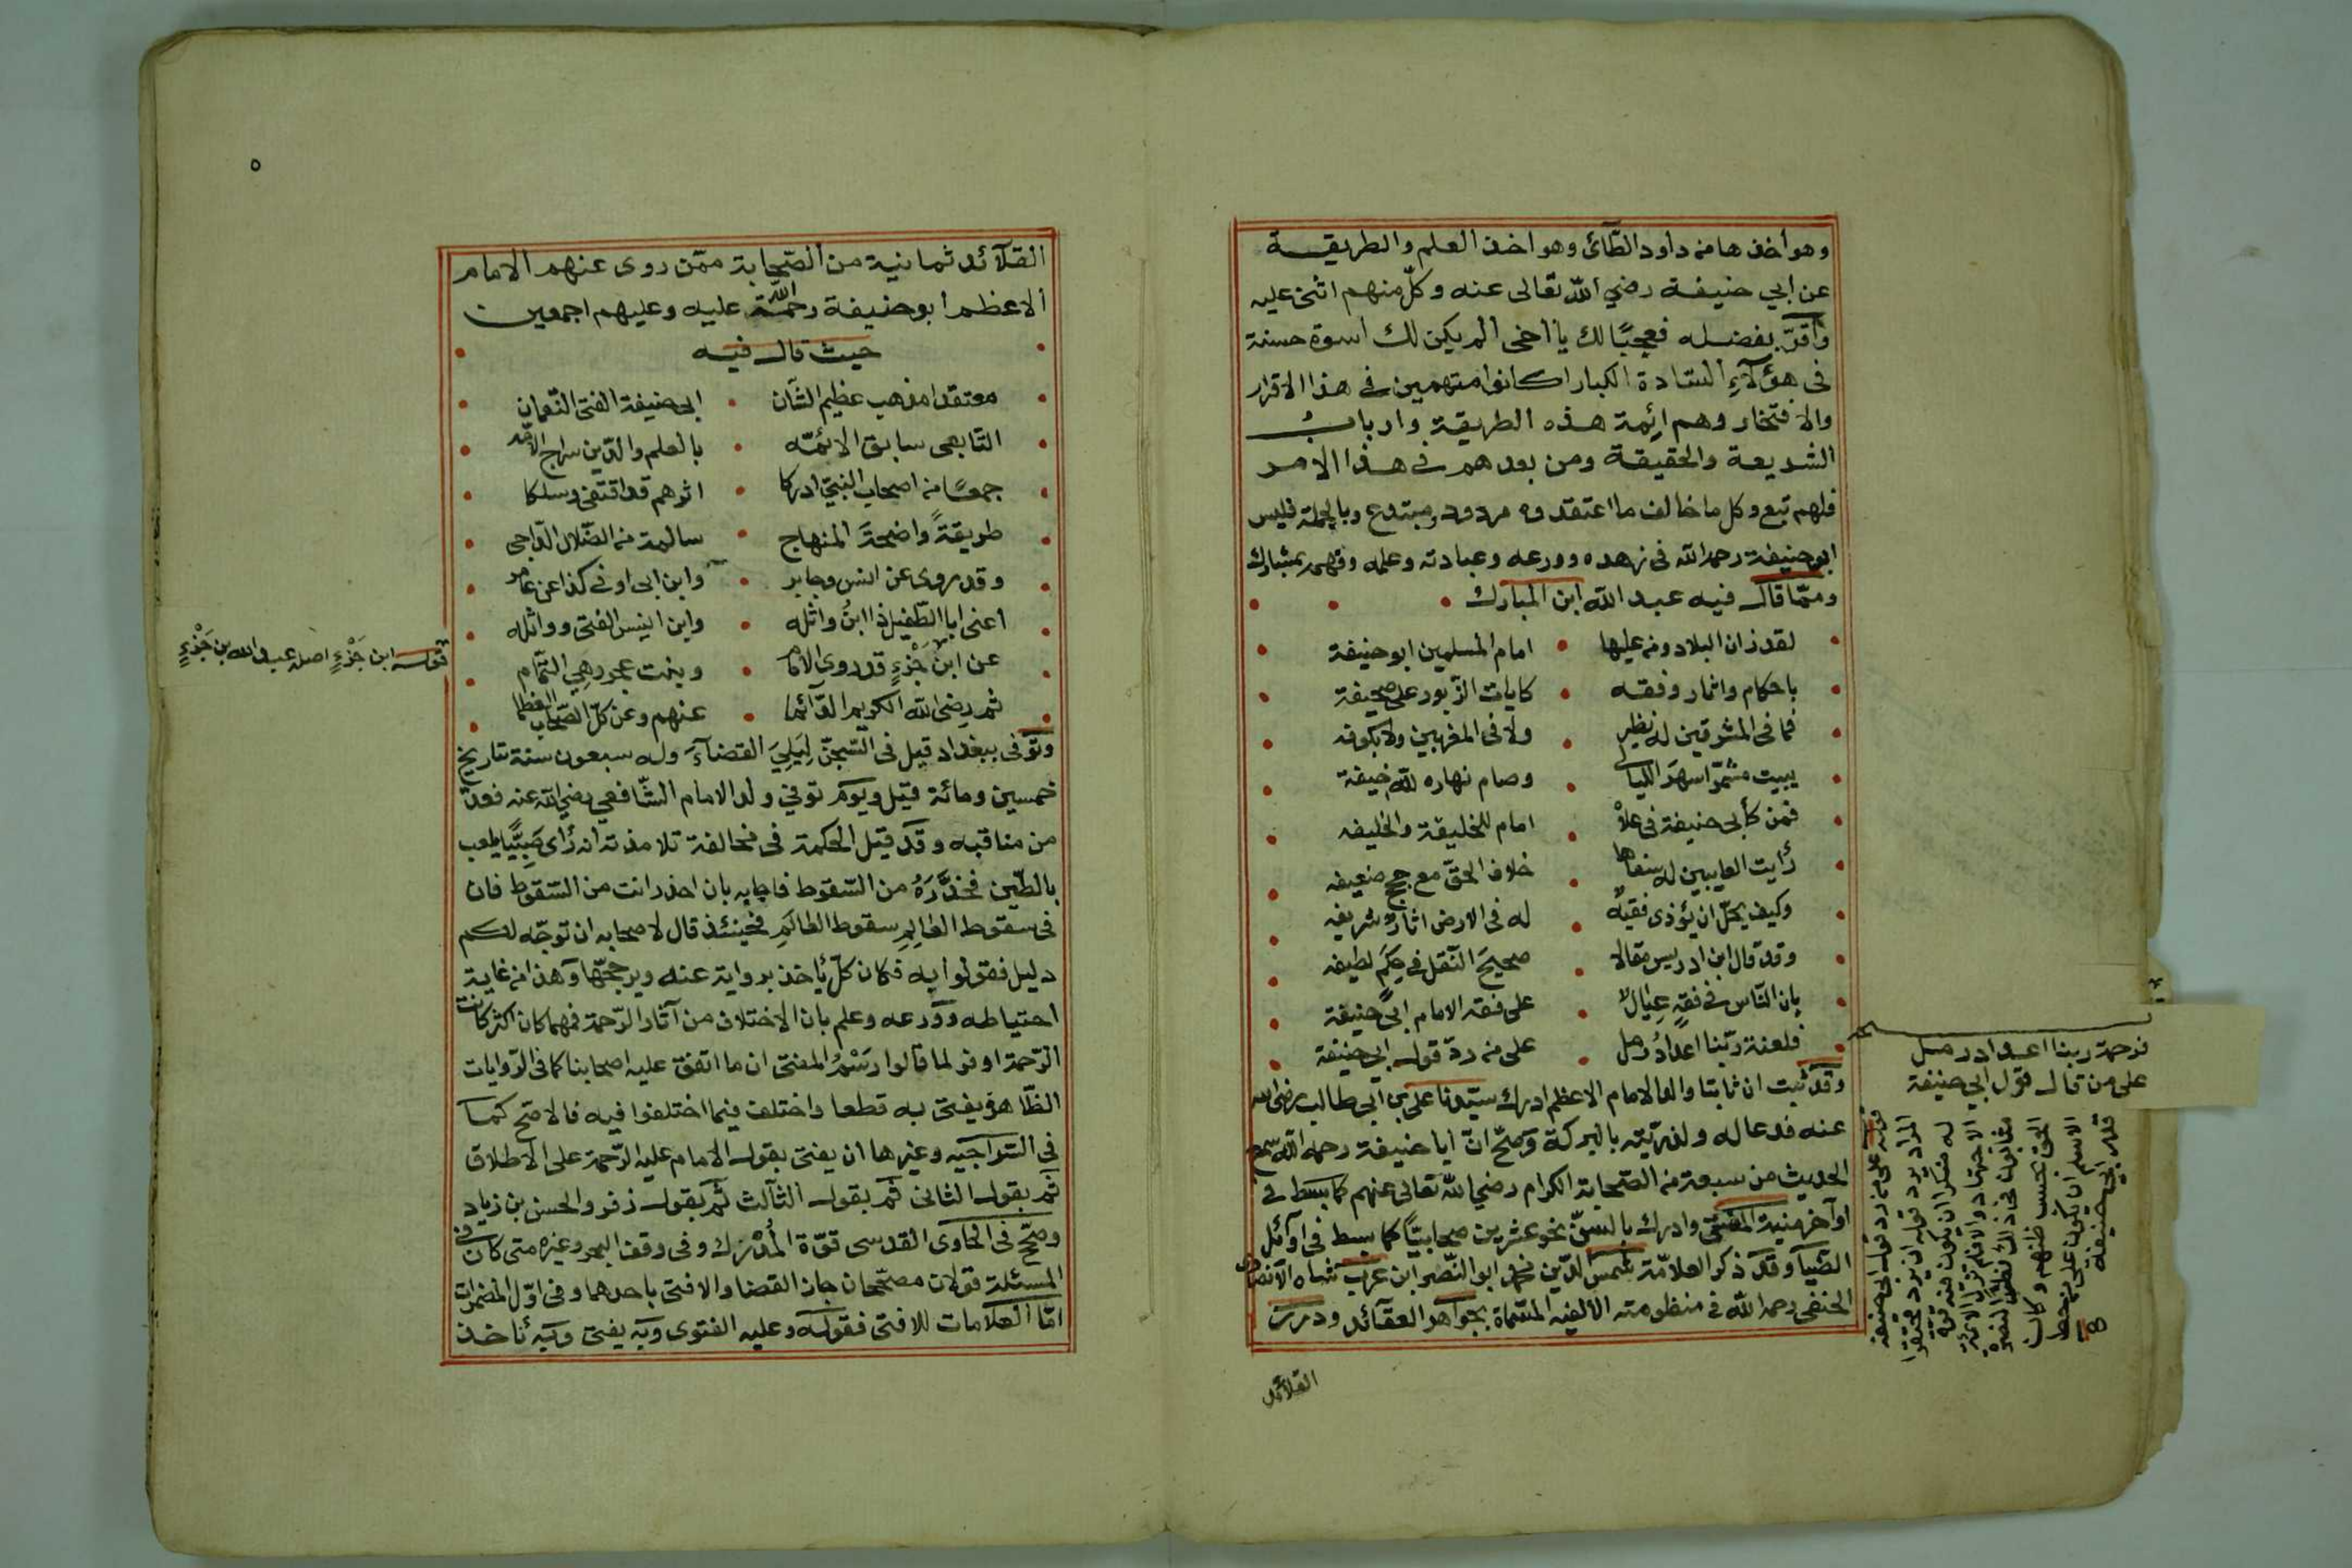 وهو أخذها من داود الطّآئى وهو اخذ العلم والطريقة
عن ابي حنيفة رضي الله تعالى عنه وكلّ منهم اثنى عليه
وأقرّ بفضله فعجبًا لك يا أخى ألم يكن لك اسوة حسنة
فى هؤلآءِ السّادة الكبار اكانوا متهمين في هذا الاقرار
والافتخار وهم ائمة هذه الطريقة وارباب
الشريعة والحقيقة ومن بعدهم في هذا الامر
فلهم تبع وكل ما خالف ما اعتقدوه مردود ومبتدع وبالجملة فليس
ابو حنيفة رحمه الله فى زهده وورعه وعبادته وعلمه وفهمه بمشارك
وممّا قال فيه عبد الله ابن المبارك
لقد زان البلاد ومن عليها • امام المسلمين ابو حنيفة
باحكام واثار وفقه • كايات الزّبور على صحيفة
فما فى المشرقين له نظير • ولا فى المغربين ولا بكوفه
يبيت مشمّرا سهر الليالى • وصام نهاره لله خيفة
فمن كأبى حنيفة فى علاه • امام للخليقة والخليفه
رأيت العايبين له سفاها • خلاف الحقّ مع حجج ضعيفه
وكيف يحلّ ان يؤذى فقيه • له فى الارض اثار شريفه
وقد قال ابن ادريس مقالا • صحيحَ النّقل في حِكَم لطيفه
بان النّاس في فقهٍ عيال • على فقه الامام ابى حنيفة
فلعنة ربّنا اعدادُ رمل • على من ردّ قول ابى حنيفة
وقد ثبت ان ثابتا والد الامام الاعظم ادرك سيّدنا على بن ابي طالب رضى الله
عنه فدعا له ولذرّيّته بالبركة وصحّ انّ ابا حنيفة رحمه الله سمع
الحديث من سبعة من الصّحابة الكرام رضي الله تعالى عنهم كما بسط في
اوآخر منية المفتى وادرك بالسنّ نحو عشرين صحابيًّا كما بسط فى اوآئل
الضّيا وقد ذكر العلاّمة شمس الدّين محمد ابو النّصر ابن عرب شاه الآنصارى
الحنفى رحمه الله في منظومته الالفيه المسّماة بجواهر العقآئد ودرر
القلآئد
فرحمة ربنا اعداد رمل
على من قال قول ابي حنيفة
قوله على من رد قول ابي حنيفة
المراد برد قوله ان يرد محتقرا
قدر ابي حنيفة
٥
القلآئد ثمانية من الصّحابة ممّن روى عنهم الامام
الاعظم ابو حنيفة رحمة الله عليه وعليهم اجمعين
حيث قال فيه
معتقدا مذهب عظيم الشّآن • ابى حنيفة الفتى النّعمان
التّابعى سابق الائمّه • بالعلم والدّين سراج الامّه
جمعًا من اصحاب النبيّ ادركا • اثرهم قد اقتفى وسلكا
طريقةً واضحةَ المنهاج • سالمة من الضّلال الدّاجى
وقد روى عن انس وجابر • وابن ابى اوفى كذا عن عامر
اعنى ابا الطّفيل ذا ابنُ واثله • وابن انيس الفتى وواثله
عن ابن جَزْءٍ قد روى الامام • وبنت عجرد هِي التّمام
ثم رضى الله الكريم الدّآئما • عنهم وعن كلّ الصّحاب العظما
وتوّفى ببغداد قيل فى السّجن لِيَلِيَ القضآءَ وله سبعون سنة بتاريخ
خمسين ومائة قيل ويوم توفي ولد الامام الشّافعي رضي الله عنه فعدّ
من مناقبه وقد قيل الحكمة فى مخالفة تلامذته انه رأى صَبِيًّا يلعب
بالطّين فحذَّرَهُ من السّقوط فاجابه بان احذر انت من السّقوط فان
فى سقوط العالِمِ سقوط العالَمِ فحينئذ قال لاصحابه ان توجّه لكم
دليل فقولوا به فكان كلّ يأخذ برواية عنه ويرجحّها وهذا من غاية
احتياطه وورعه وعلم بان الاختلاف من آثار الرّحمة فمهما كان اكثر كانت
الرّحمة اوفر لما قالوا رَسْمُ المفتى ان ما اتفق عليه اصحابنا كما فى الرّوايات
الظّاهرة يفتى به قطعا واختلف فيما اختلفوا فيه فالاصّح كما
فى السّراجيه وغيرها ان يفتى بقول الامام عليه الرّحمة على الاطلاق
ثم بقول الثانى ثم بقول الثآلث ثم بقول زفر والحسن بن زياد
وصحّح فى الحاوى القدسى قوّة المُدْرَك وفى وقف البحر وغيره متى كان فى
المسئلة قولان مصحّحان جاز القضا والافتى باحدهما وفى اوّل المضمرات
امّا العلامات للافتى فقوله وعليه الفتوى وبه يفتى وبه نأخذ
قوله ابن جَزْءٍ اصله عبد الله بن جَزْءٍ